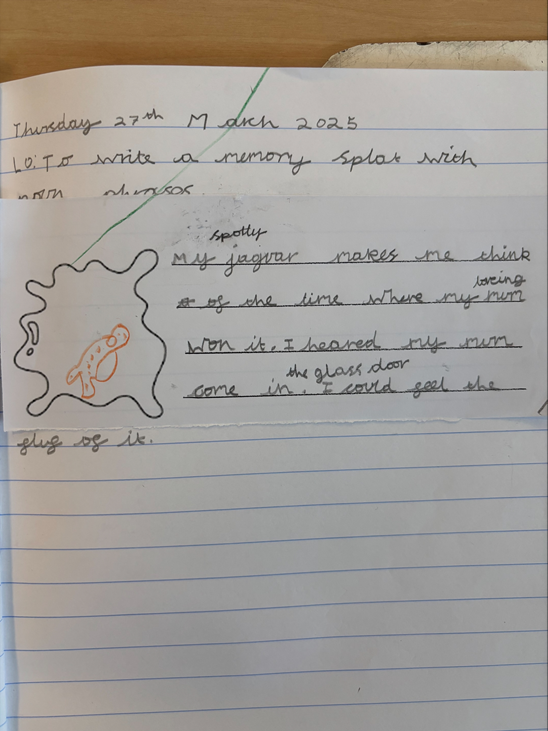 Thursday 27th March 2025
LO: To write a memory splat with
noun phrases.
spotty
My jaguar makes me think
of the time where my mum
loving
won it. I heared my mum
the glass door
come in. I could feel the
fluf of it.